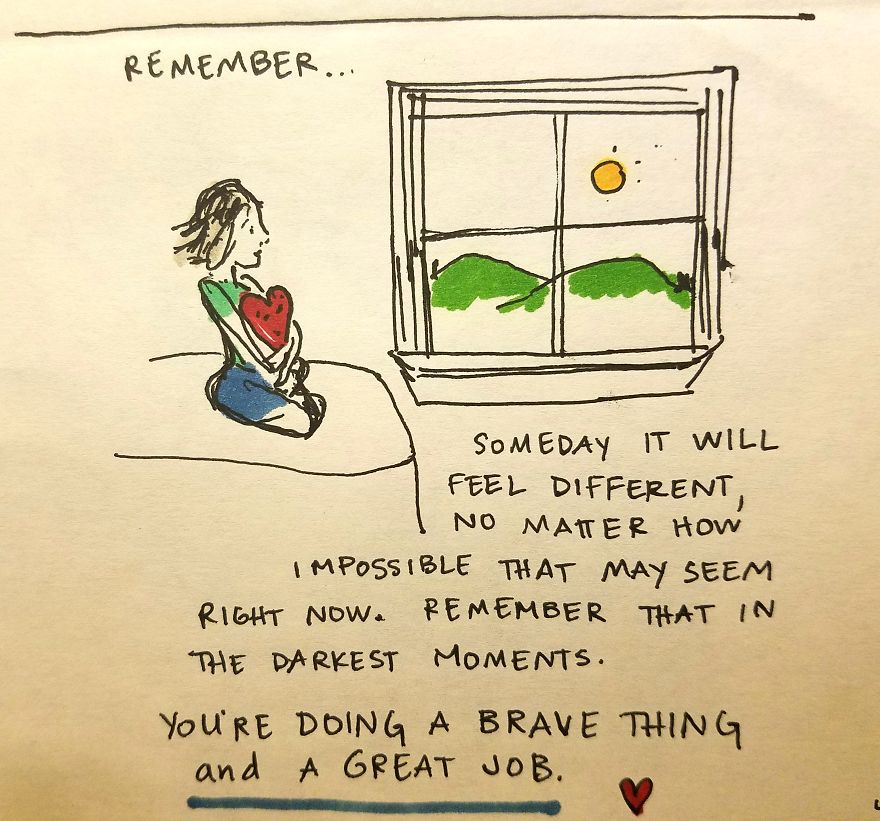 REMEMBER...
SOMEDAY IT WILL
FEEL DIFFERENT,
NO MATTER HOW
IMPOSSIBLE THAT MAY SEEM
RIGHT NOW. REMEMBER THAT IN
THE DARKEST MOMENTS.
YOU'RE DOING A BRAVE THING
and A GREAT JOB.